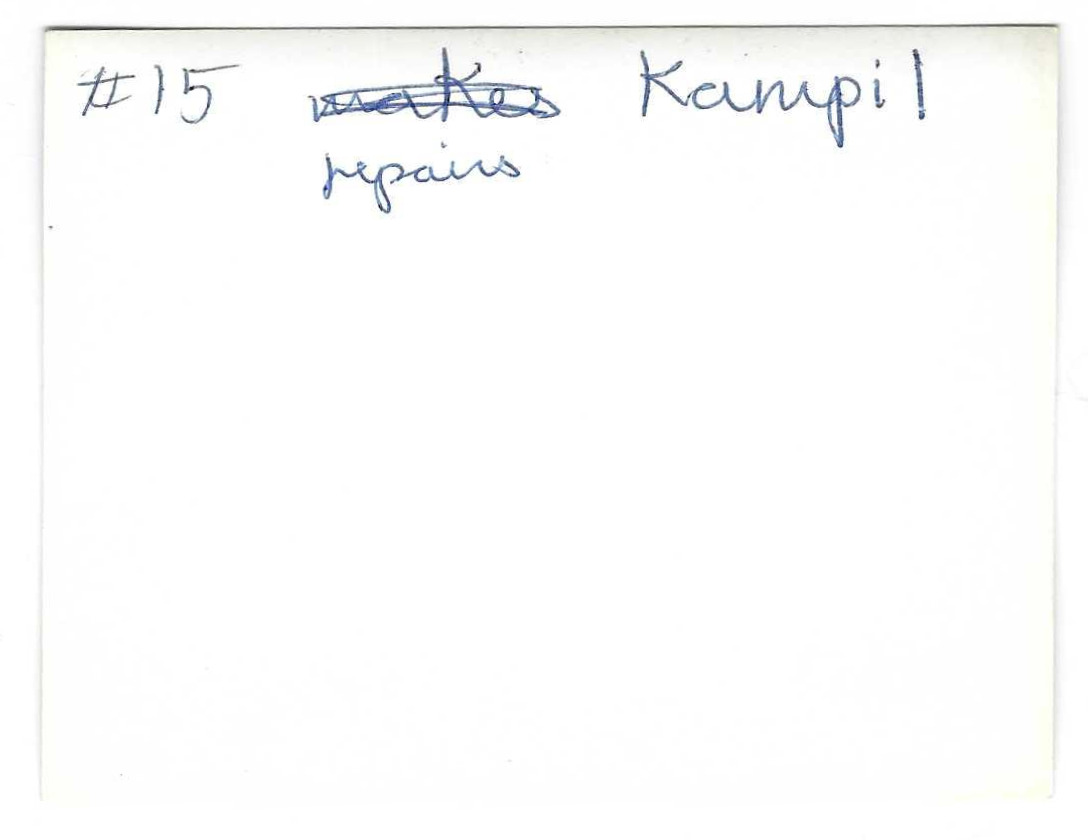 #15 makes Kampil
repairs